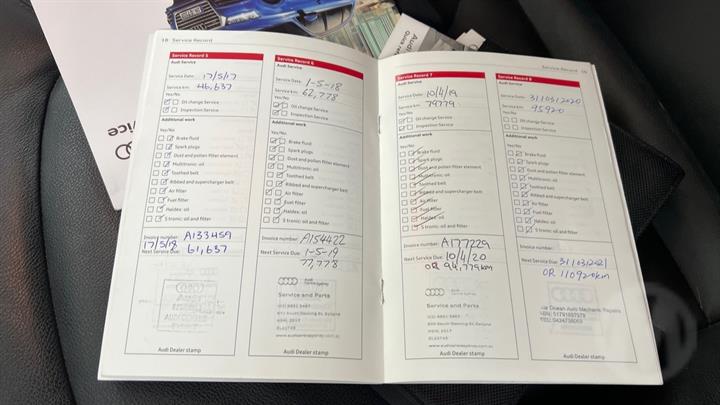 18 Service Record
Service Record 5
Audi Service
Service Date: 17/5/17
Service km: 46,637
Yes/No
Oil change Service
Inspection Service
Additional work
Yes/No
Brake fluid
Spark plugs
Dust and pollen filter element
Multitronic: oil
Toothed belt
Ribbed and supercharger belt
Air filter
Fuel filter
Haldex: oil
S tronic: oil and filter
Invoice number: A133459
17/5/18
Next Service Due: 61,637
Audi Dealer stamp
Service Record 6
Audi Service
Service Date: 1-5-18
Service km: 62,778
Yes/No
Oil change Service
Inspection Service
Additional work
Yes/No
Brake fluid
Spark plugs
Dust and pollen filter element
Multitronic: oil
Toothed belt
Ribbed and supercharger belt
Air filter
Fuel filter
Haldex: oil
S tronic: oil and filter
Invoice number: A154422
Next Service Due: 1-5-19
77,778
Audi
Service and Parts
Audi Dealer stamp
Service Record
Service Record 7
Audi Service
Service Date: 10/4/19
Service km: 79779
Yes/No
Oil change Service
Inspection Service
Additional work
Yes/No
Brake fluid
Spark plugs
Dust and pollen filter element
Multitronic: oil
Toothed belt
Ribbed and supercharger belt
Air filter
Fuel filter
Haldex: oil
S tronic: oil and filter
Invoice number: A177229
Next Service Due: 10/4/20
OR 94,779km
Audi
Service and Parts
Audi Dealer stamp
Service Record 8
Audi Service
Service Date: 31/03/2020
Service km: 95920
Yes/No
Oil change Service
Inspection Service
Additional work
Yes/No
Brake fluid
Spark plugs
Dust and pollen filter element
Multitronic: oil
Toothed belt
Ribbed and supercharger belt
Air filter
Fuel filter
Haldex: oil
S tronic: oil and filter
Invoice number:
Next Service Due: 31/03/2021
OR 110920km
Ocean Auto Mechanic Repairs
Audi Dealer stamp